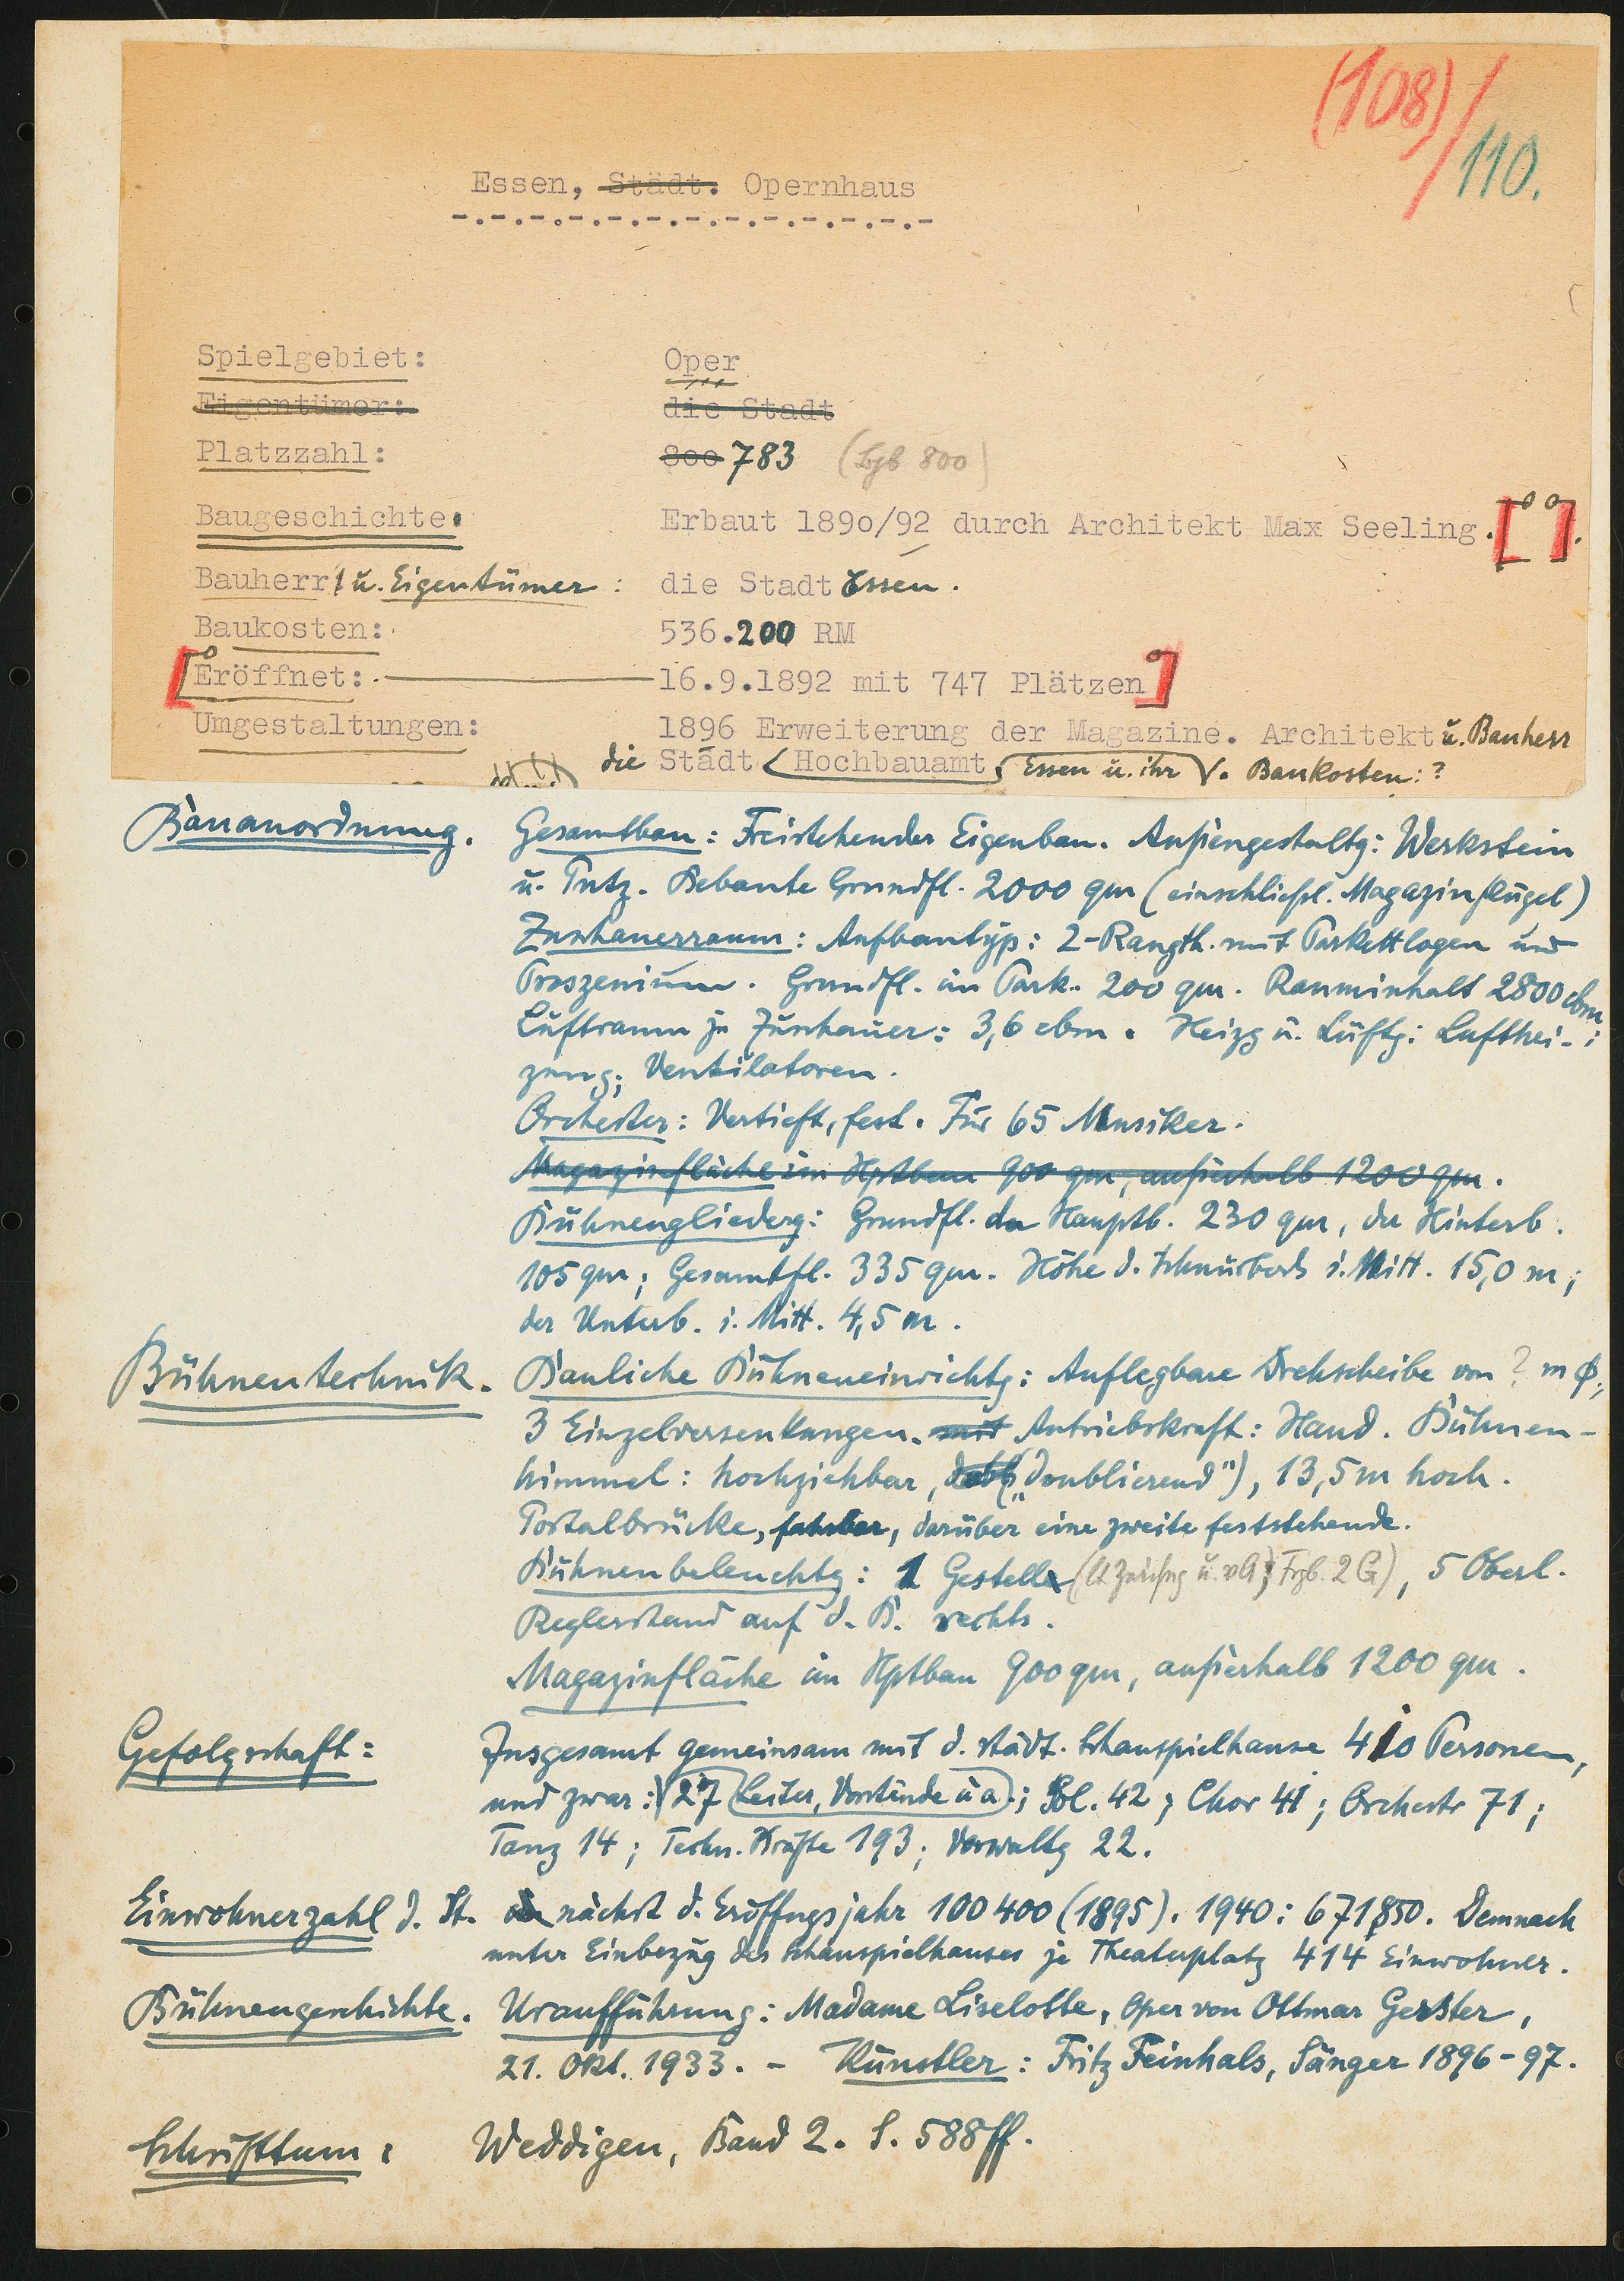 (108)/110.
Essen, Städt. Opernhaus
-.-.-.-.-.-.-.-.-.-.-.-.-
Spielgebiet: Oper
Eigentümer: die Stadt
Platzzahl: 800 783 (800)
Baugeschichte. Erbaut 1890/92 durch Architekt Max Seeling.[ ].
Bauherr u. Eigentümer: die Stadt Essen.
Baukosten: 536.200 RM
[Eröffnet: 16.9.1892 mit 747 Plätzen]
Umgestaltungen: 1896 Erweiterung der Magazine. Architekt u. Bauherr
die Stadt Hochbauamt, Essen u. ihr. Baukosten: ?
Bauanordnung. Gesamtbau: Freistehender Eigenbau. Außengestaltg: Werkstein
u. Putz. Bebaute Grundfl. 2000 qm (einschließl. Magazinflügel)
Zuschauerraum: Aufbautyp: 2-Rangth. mit Parkettlogen und
Proszenium. Grundfl. im Park. 200 qm. Rauminhalt 2800 cbm;
Luftraum je Zuschauer: 3,6 cbm. Heizg u. Lüftg: Lufthei-
zung; Ventilatoren.
Orchester: Vertieft, fest. Für 65 Musiker.
Magazinfläche im Hptbau 900 qm, außerhalb 1200 qm.
Bühnengliederg: Grundfl. der Hauptb. 230 qm, der Hinterb.
105 qm; Gesamtfl. 335 qm. Höhe d. Schnürbods i. Mitt. 15,0 m;
der Unterb. i. Mitt. 4,5 m.
Bühnentechnik. Bauliche Bühneneinrichtg: Auflegbare Drehscheibe von ? m Ø;
3 Einzelversenkungen. mit Antriebskraft: Hand. Bühnen-
himmel: hochziehbar, („doublierend"), 13,5 m hoch.
Portalbrücke, fahrbar, darüber eine zweite feststehende.
Bühnenbeleuchtg: 1 Gestell (lt Zeichng u. Frgb. 2 G), 5 Oberl.
Reglerstand auf d. B. rechts.
Magazinfläche im Hptbau 900 qm, außerhalb 1200 qm.
Gefolgschaft: Insgesamt gemeinsam mit d. städt. Schauspielhause 410 Personen,
und zwar: 27 Leiter, Vorstände u a.; Sol. 42; Chor 41; Orchestr 71;
Tanz 14; Techn. Kräfte 193; Verwaltg 22.
Einwohnerzahl d. St. nächst d. Eröffngsjahr 100 400 (1895). 1940: 671850. Demnach
unter Einbezug des Schauspielhauses je Theaterplatz 414 Einwohner.
Bühnengeschichte. Uraufführung: Madame Liselotte, Oper von Ottmar Gerster,
21. Okt. 1933. - Künstler: Fritz Feinhals, Sänger 1896-97.
Schrifttum: Weddigen, Band 2. S. 588 ff.